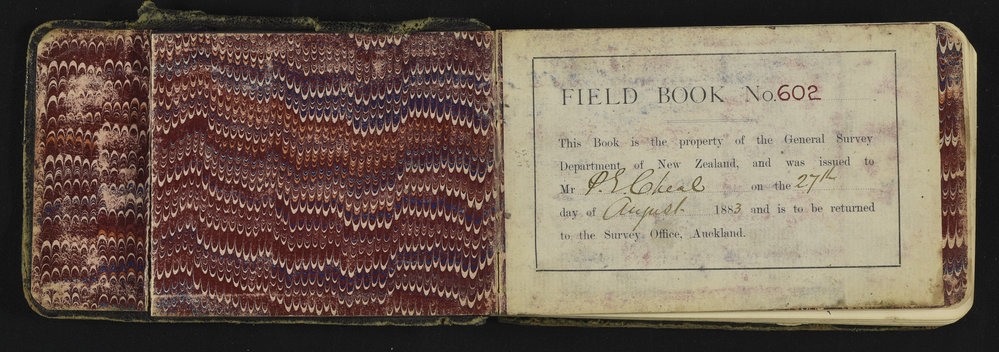 FIELD BOOK No. 602
This Book is the property of the General Survey
Department of New Zealand, and was issued to
Mr P. E. Cheal on the 27th
day of August 1883 and is to be returned
to the Survey Office, Auckland.